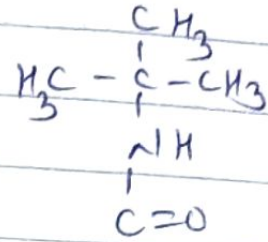 CH3
H3C - C - CH3
NH
C=O